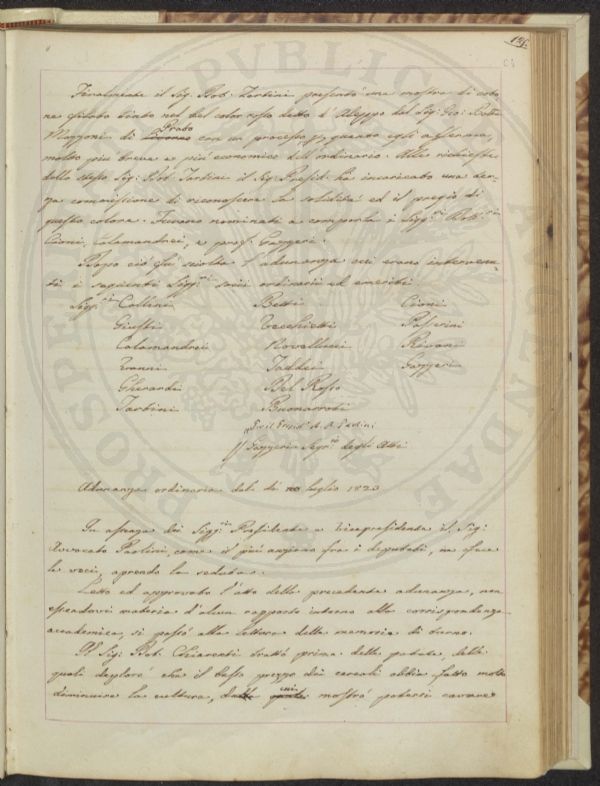 125.
Finalmente il Sig. Dott. Tartini presentò una mostra di coto
ne filato tinto nel bel color rosso detto d'Aleppo dal Sig: Gio: Batta
Mazzoni di Prato con un processo, quando egli asserava,
molto più breve e più economico dell'ordinario. Alle richieste
dello stesso Sig: Dott. Tartini il Sig: Presid.e ha incaricato una
commissione di riconoscere la solidità ed il pregio di
questo colore. Furono nominati a comporla i Sigg.ri Dott.ri
Cioni, Calamandrei, e prof. Gazzeri.
Dopo ciò fu sciolta l'adunanza cui erano interven
ti i seguenti Sigg.ri soci ordinarii ed emeriti.
Sigg.ri Collini Betti Cioni
Giusti Vecchietti Passerini
Calamandrei Novellucci
Vanni Taddei Gazzeri
Gherardi Del Rosso
Tartini Buonarroti
Gazzeri Segr.io degli Atti
Adunanza ordinaria del dì luglio 1823
In assenza dei Sigg.ri Presidente e Vicepresidente il Sig:
Avvocato Paolini, come il più anziano fra i deputati, ne fece
le veci, aprendo la seduta.
Letto ed approvato l'atto della precedente adunanza, non
essendovi materia d'alcun rapporto intorno alla corrispondenza
accademica, si passò alla lettura delle memorie di turno.
Il Sig: Dott. Chiarenti trattò prima delle patate, delle
quali deplorò che il basso prezzo dei cereali abbia fatto molto
diminuire la cultura, mostrò potersi cavare
PROSPERITATI PVBLICAE AVGENDAE